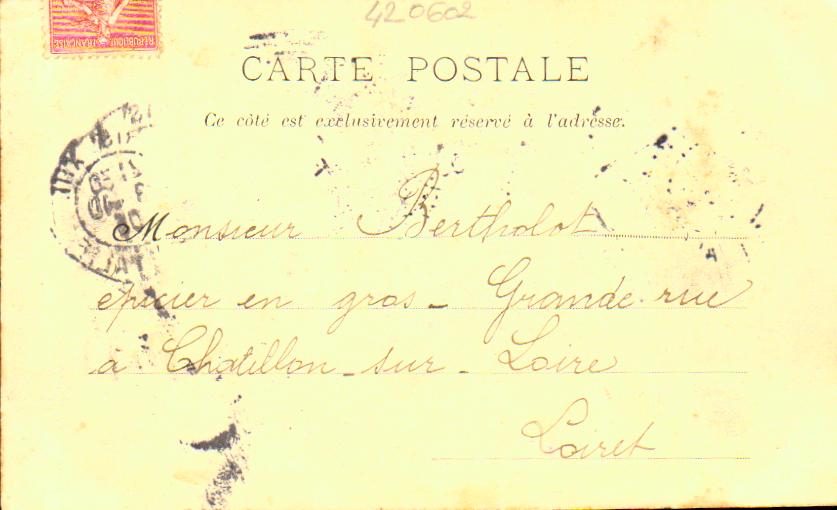 420602
REPUBLIQUE FRANÇAISE
CARTE POSTALE
Ce côté est exclusivement réservé à l'adresse.
Monsieur Bertholot
epicier en gros - Grande rue
à Chatillon-sur-Loire
Loiret